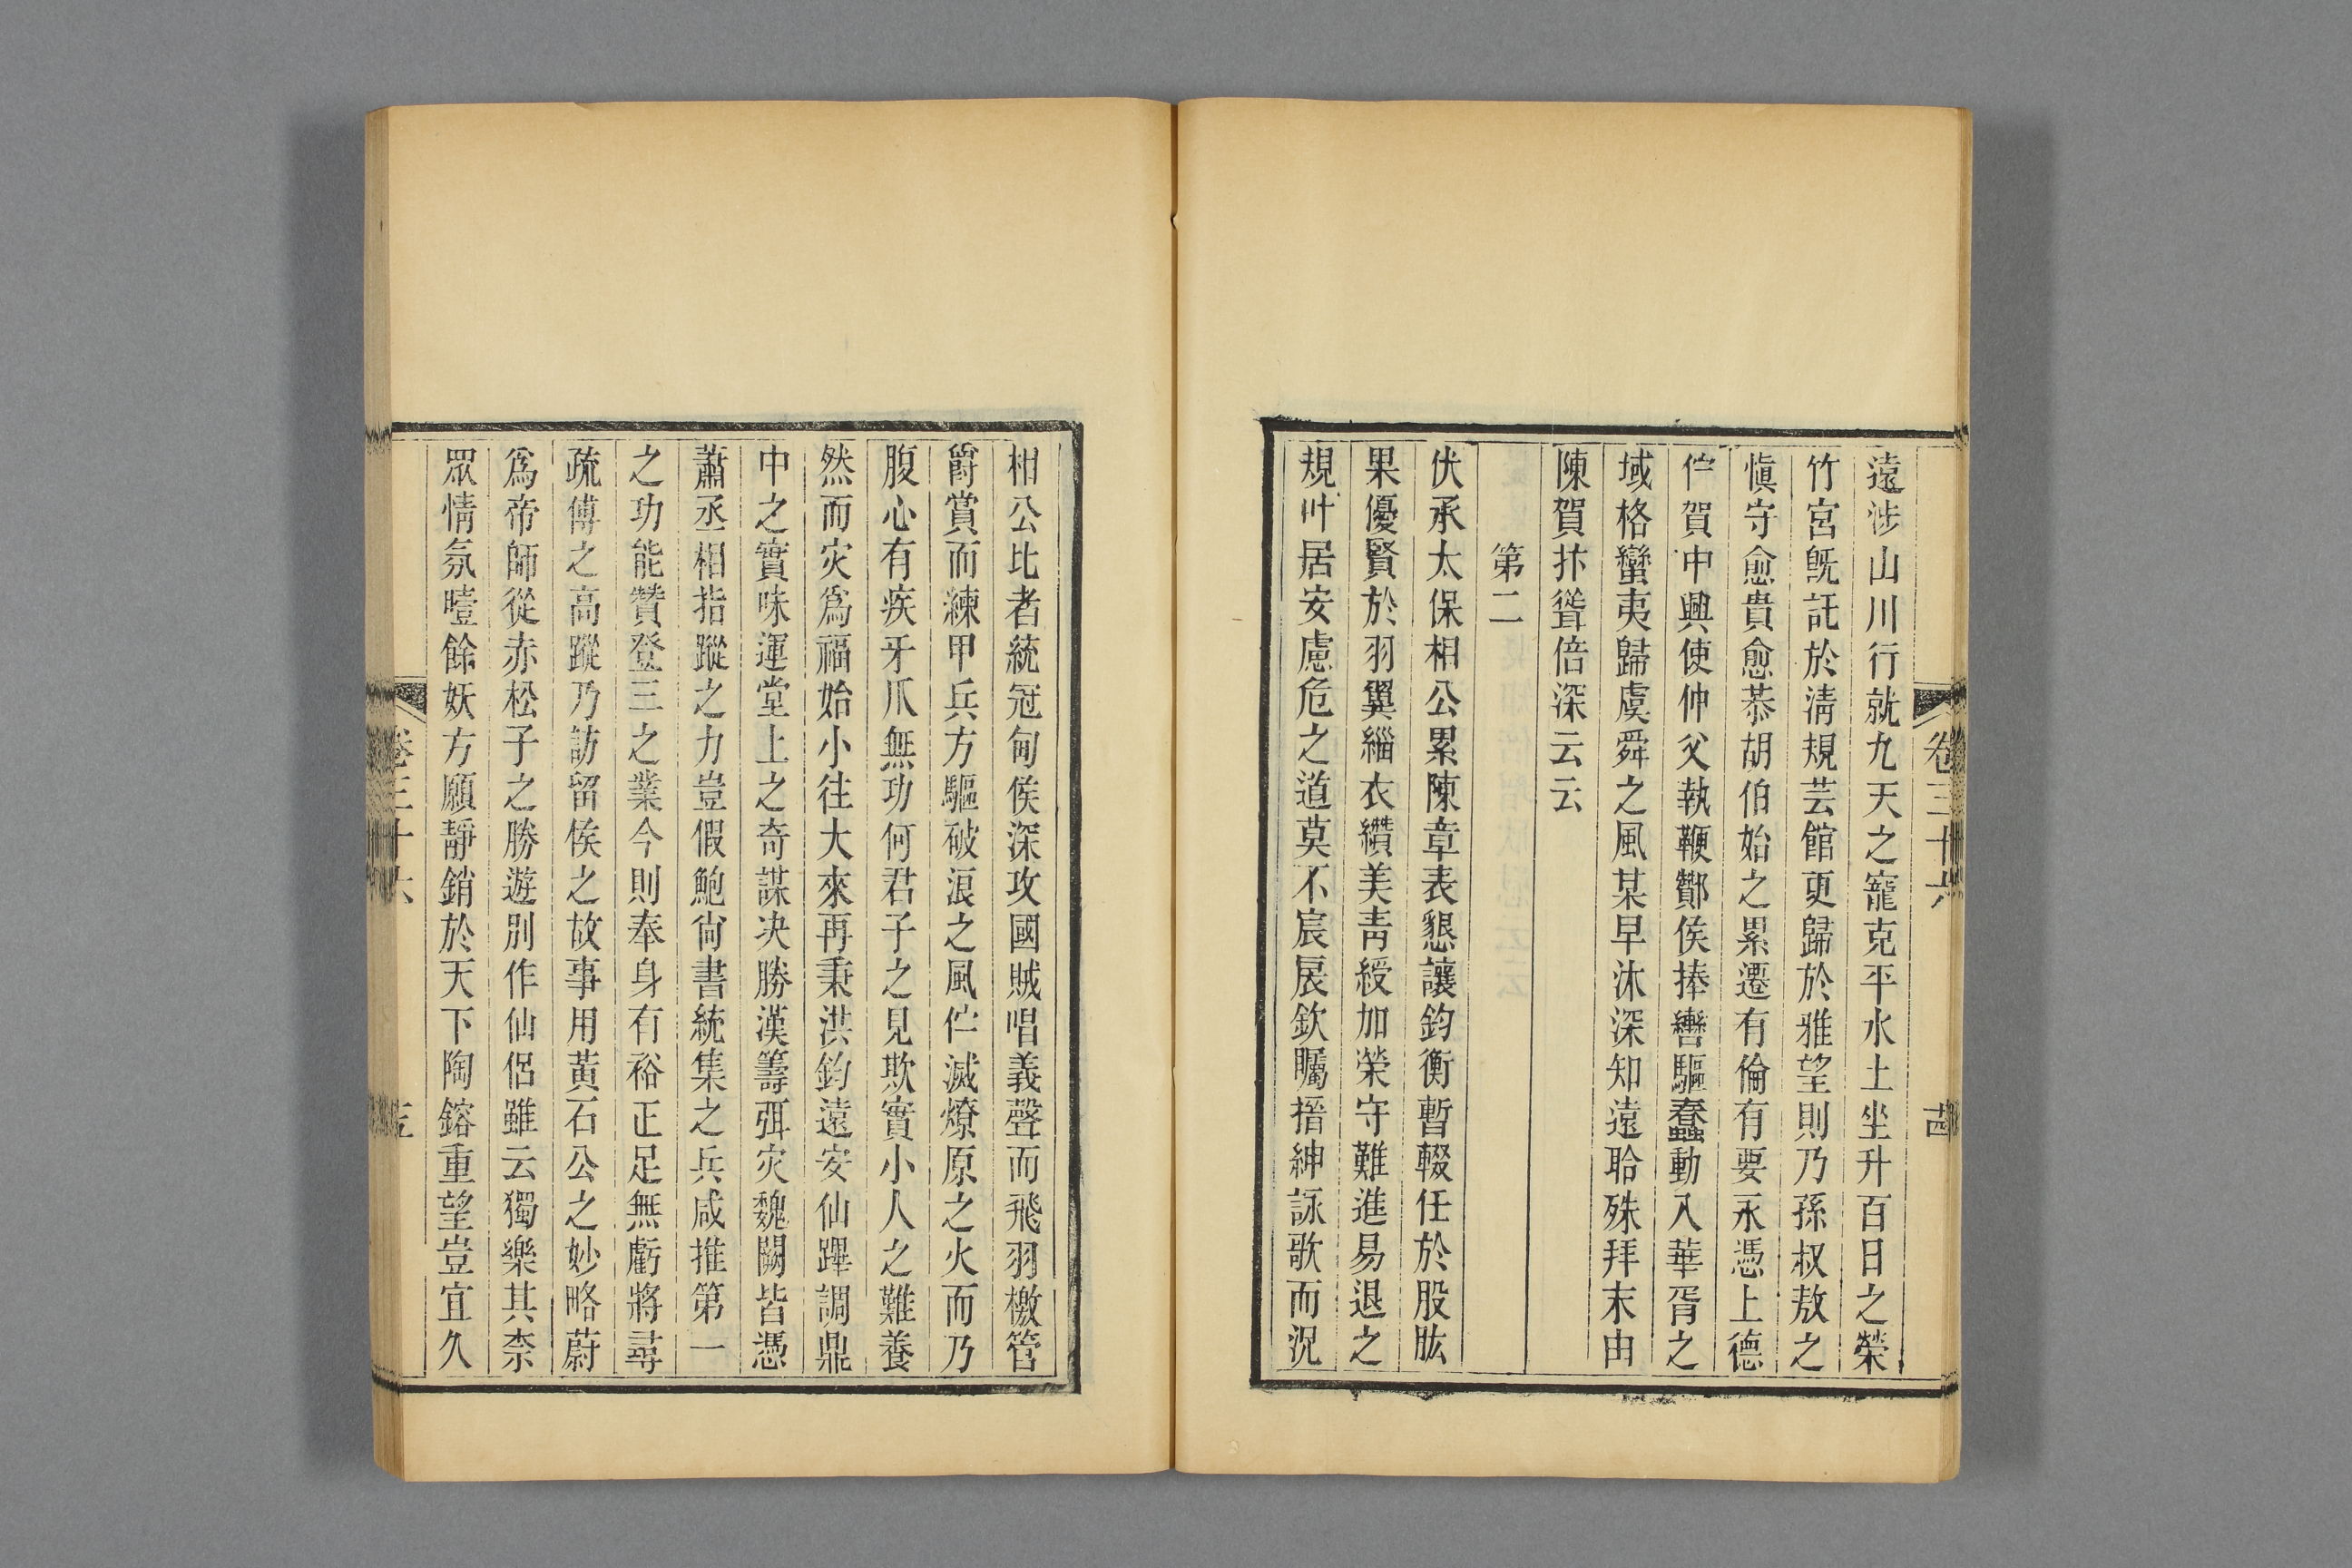 卷三十六
遠涉山川行就九天之寵克平水土坐升百日之榮
竹宮旣託於淸規芸館更歸於雅望則乃孫叔敖之
愼守愈貴愈恭胡伯始之累遷有倫有要永憑上德
伫賀中興使仲父執鞭酇侯捧轡驅蠢動入華胥之
域格蠻夷歸虞舜之風某早沐深知遠聆殊拜末由
陳賀抃聳倍深云云
第二
伏承太保相公累陳章表懇讓鈞衡暫輟任於股肱
果優賢於羽翼緇衣纘美靑綬加榮守難進易退之
規叶居安慮危之道莫不宸扆欽矚搢紳詠歌而況
相公比者統冠甸侯深攻國賊唱義聲而飛羽檄管
爵賞而練甲兵方驅破浪之風伫滅燎原之火而乃
腹心有疾牙爪無功何君子之見欺實小人之難養
然而灾爲福始小往大來再秉洪鈞遠安仙蹕調鼎
中之實味運堂上之奇謀决勝漢籌弭灾魏闕皆憑
蕭丞相指蹤之力豈假鮑尙書統集之兵咸推第一
之功能贊登三之業今則奉身有裕正足無虧將尋
疏傅之高蹤乃訪留侯之故事用黃石公之妙略蔚
爲帝師從赤松子之勝遊別作仙侶雖云獨樂其柰
眾情氛曀餘妖方願靜銷於天下陶鎔重望豈宜久
卷三十六